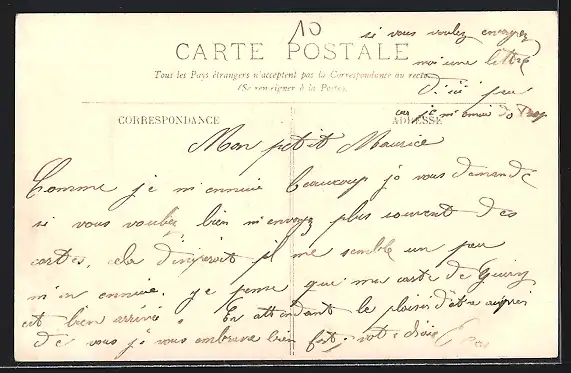 10
si vous voulez envoyez
moi une lettre
d'ici peu
car je m'ennui
CARTE POSTALE
Tous les Pays étrangers n'acceptent pas la Correspondance au recto
(Se renseigner à la Poste).
CORRESPONDANCE
ADRESSE
Mon petit Maurice
Comme je m'ennuie beaucoup je vous demande
si vous vouliez bien m'envoyez plus souvent des
cartes, il me semble un peu
m'en ennuie. je pense que ma carte de
est bien arrivée En attendant le plaisir d'être auprès
de vous je vous embrasse bien fort, votre